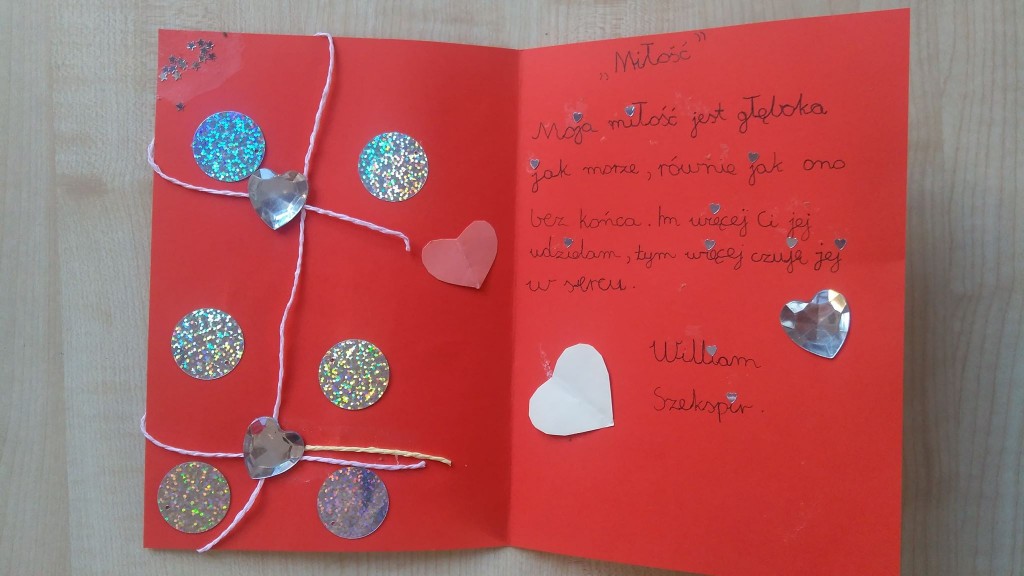 „Miłość”
Moja miłość jest głęboka
jak morze, równie jak ono
bez końca. Im więcej Ci jej
udzielam, tym więcej czuję jej
w sercu.
William
Szekspir.